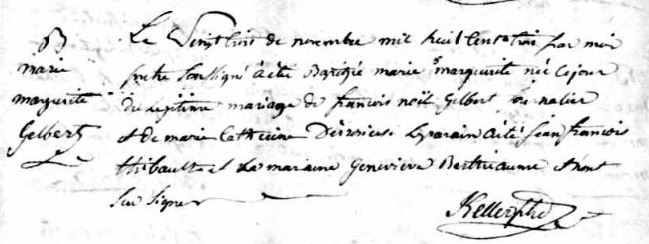 B
marie
marguerite
Gelbert
Le Vingt trois de novembre mil huit Cent trois par moi
pretre Soussigné à été Baptisé marie marguerite née Ce jour
du légitime mariage de francois noel Gelbert journalier
et de marie Catherine Le parain à été jean francois
thibault et La maraine Genevieve qui n'ont
Su signer
Keller ptre